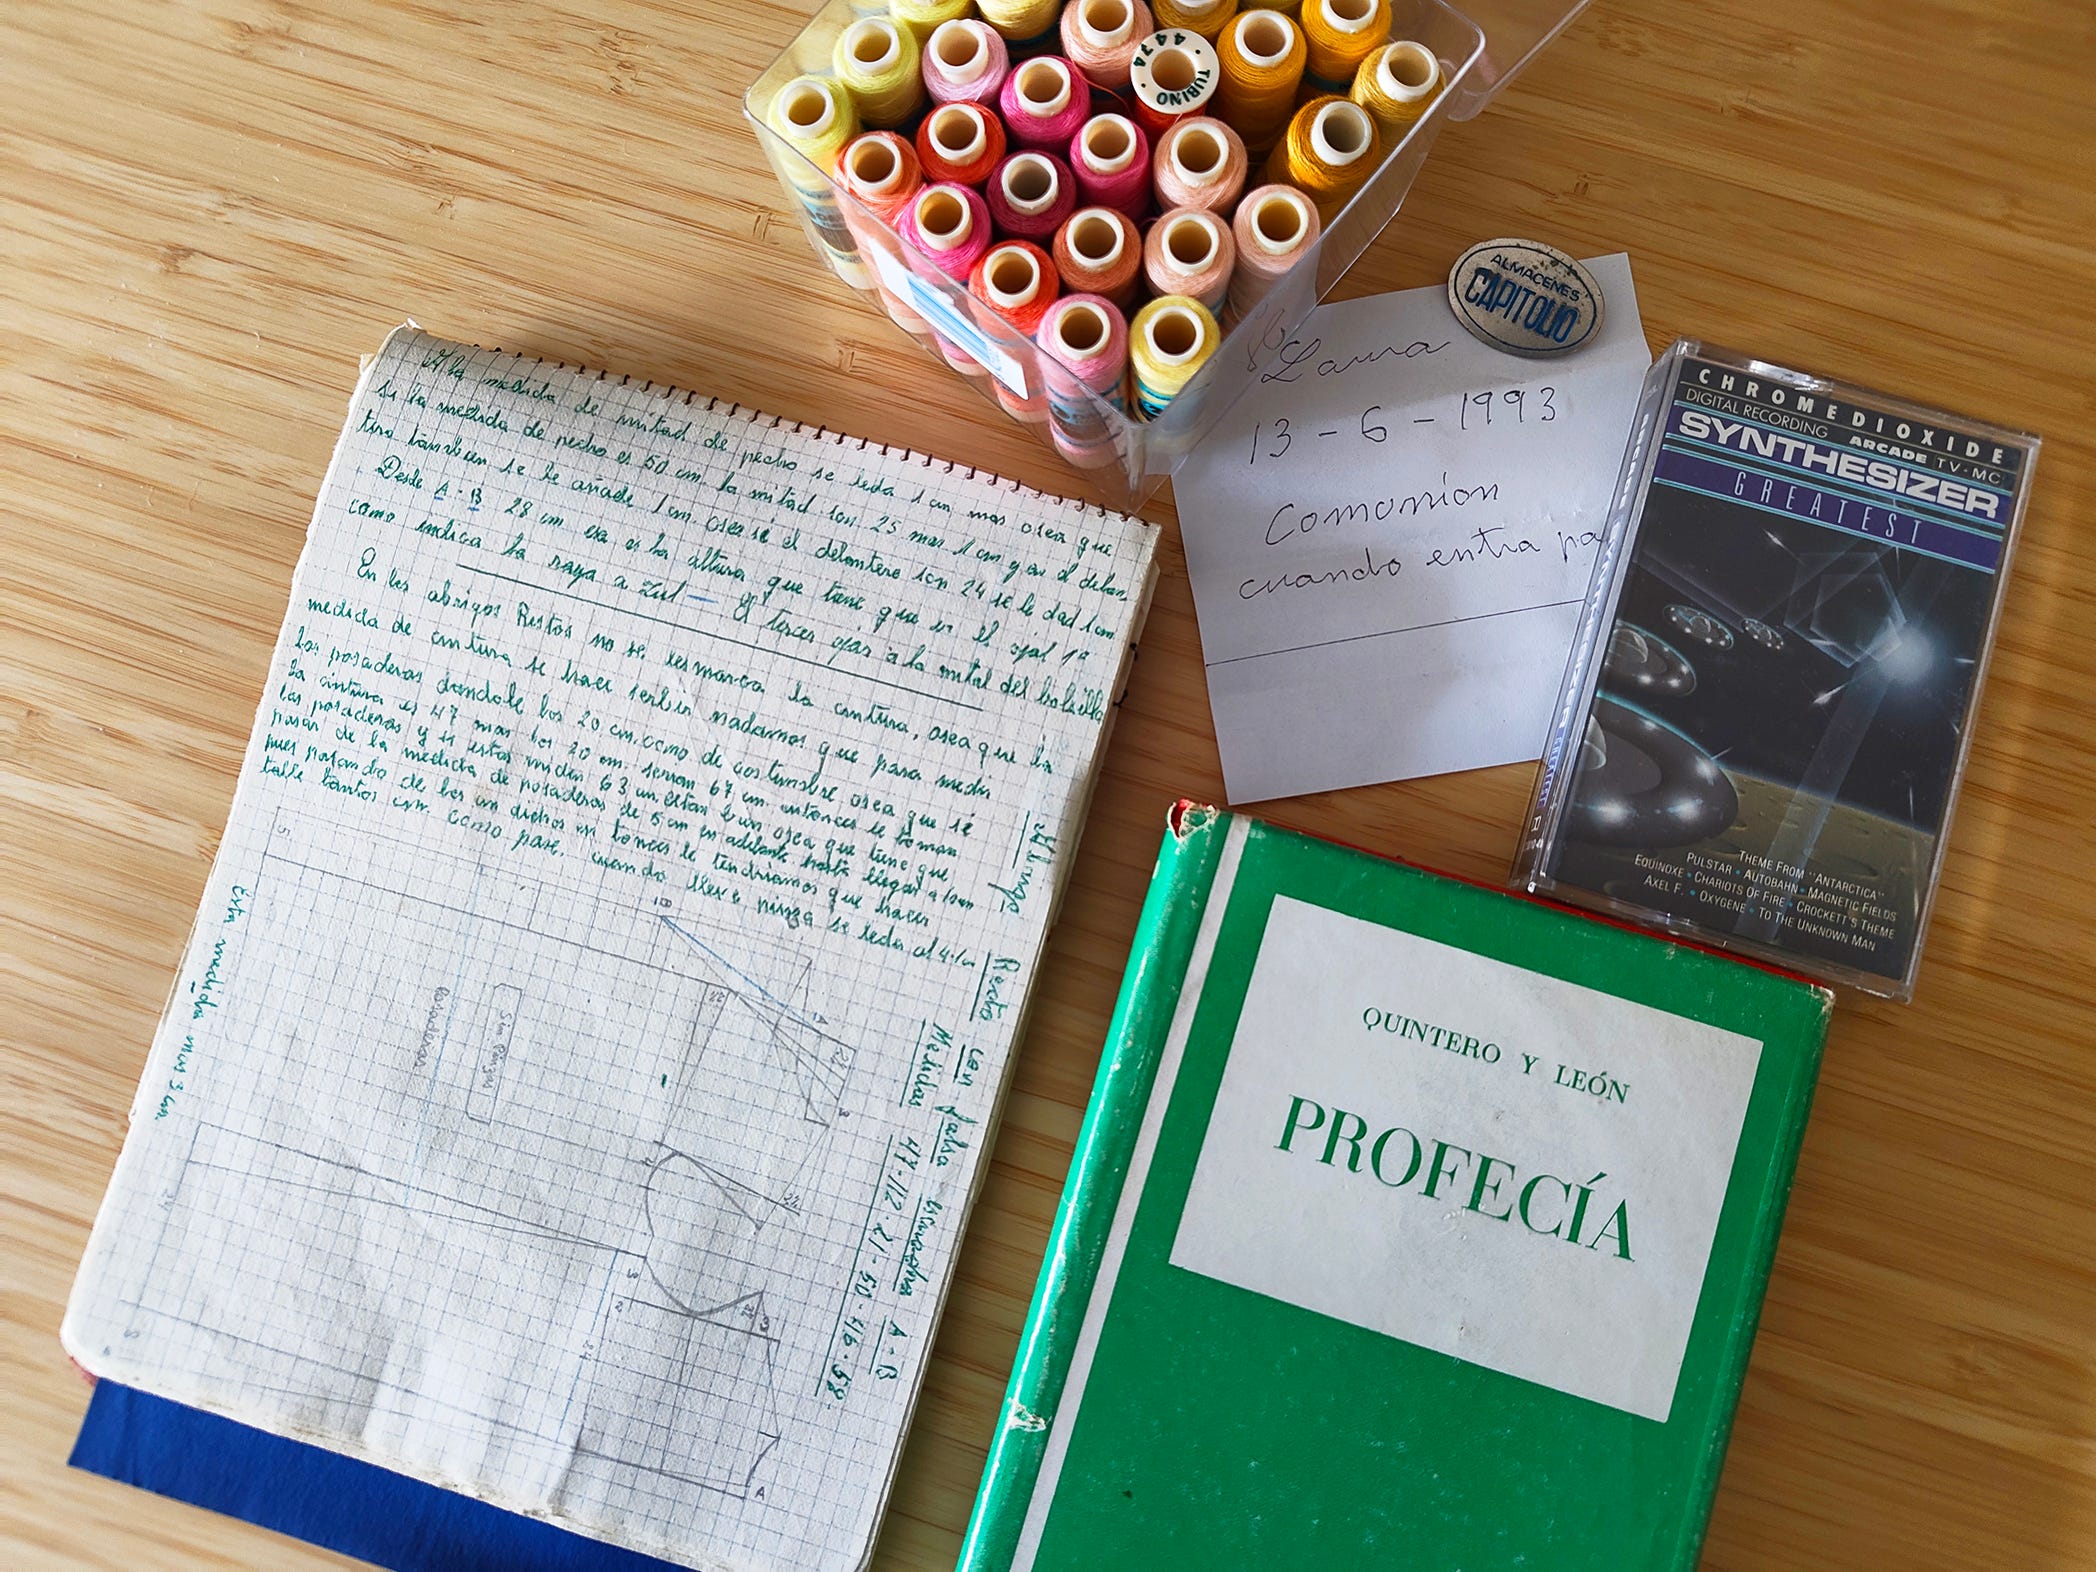 TUBINO · 4474 ·
ALMACENES
CAPITOLIO
Laura
13 - 6 - 1993
Comonion
cuando entra pa
CHROMEDIOXIDE
DIGITAL RECORDING ARCADE TV-MC
SYNTHESIZER
GREATEST
THEME FROM "ANTARCTICA"
PULSTAR • AUTOBAHN • MAGNETIC FIELDS
EQUINOXE • CHARIOTS OF FIRE • CROCKETT'S THEME
AXEL F. • OXYGENE • TO THE UNKNOWN MAN
QUINTERO Y LEÓN
PROFECÍA
A la medida de mitad de pecho se leda 1 cm mas osea que
si la medida de pecho es 50 cm. la mitad son 25 mas 1 cm y en el delan
tero tambien se le añade 1 cm. osea si el delantero son 24 se le dad 1 cm
Desde A - B 28 cm esa es la altura que tiene que ir el ojal 1º
como indica la raya azul — El tercer ojar a la mital del bolsillo
En los abrigos Rectos no se remarca la cintura, osea que la
medida de cintura se hace serbir nadamas que para medir
las posaderas dandole los 20 cm. como de costumbre osea que si
la cintura es 47 mas los 20 cm. seran 67 cm. entonces se toman
las posaderas y si estas miden 63 cm. estan bien osea que tiene que
pasar de la medida de posaderas de 5 cm en adelante hasta llegar a
pues pasando de los cm dichos entonces le tendriamos que hacer
talle tantos cm. como pase. cuando lleve pinza se leda al 4 · 1 cm
Recto con falsa escuadra A - B
Medidas 47 · 112 · 21 - 50 · 46 · 58 -
Sin Pinzas
Posaderas
Esta medida mas 3 cm.